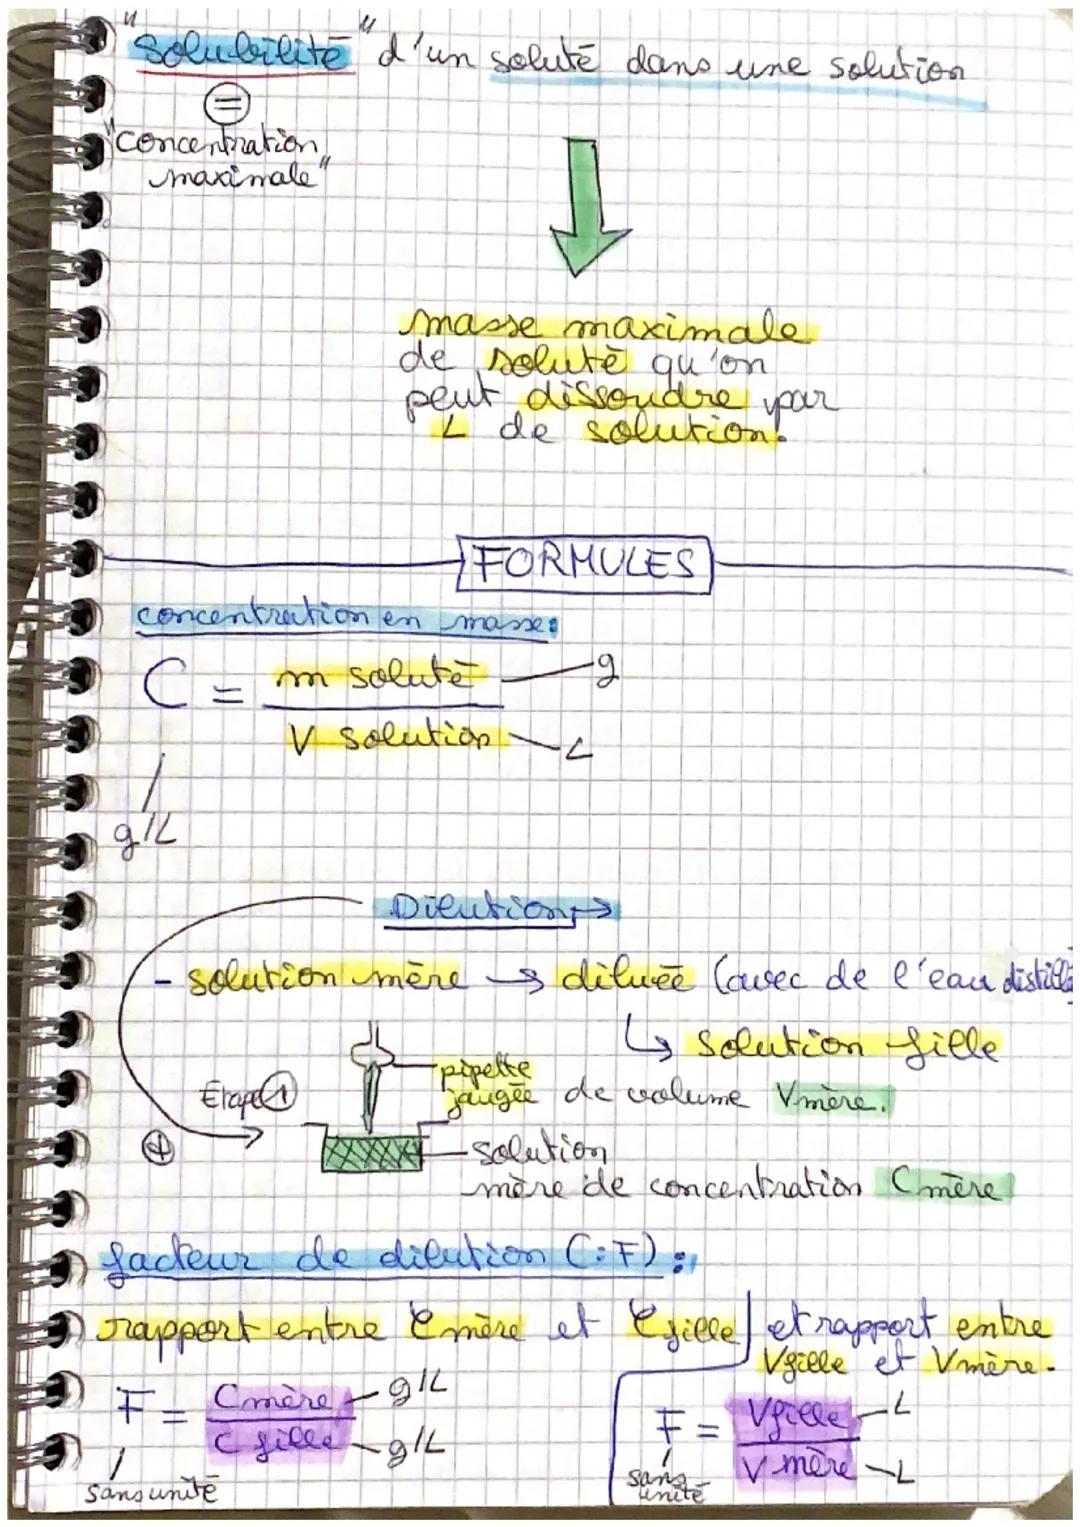 "Solubilité" d'un soluté dans une solution
=
"concentration
maximale"
masse maximale
de soluté qu'on
peut dissoudre par
L de solution.
FORMULES
concentration en masse:
C = m soluté g
V solution L
g/L
Dilution →
- solution mère → diluée (avec de l'eau distillée
↳ solution fille
pipette
jaugée de volume Vmère.
Étape 1
solution
mère de concentration Cmère
facteur de dilution (:F) :
rapport entre Cmère et Cfille et rapport entre
Vfille et Vmère.
F = Cmère g/L
C fille g/L
sans unité
F = Vfille L
V mère L
sans
unité